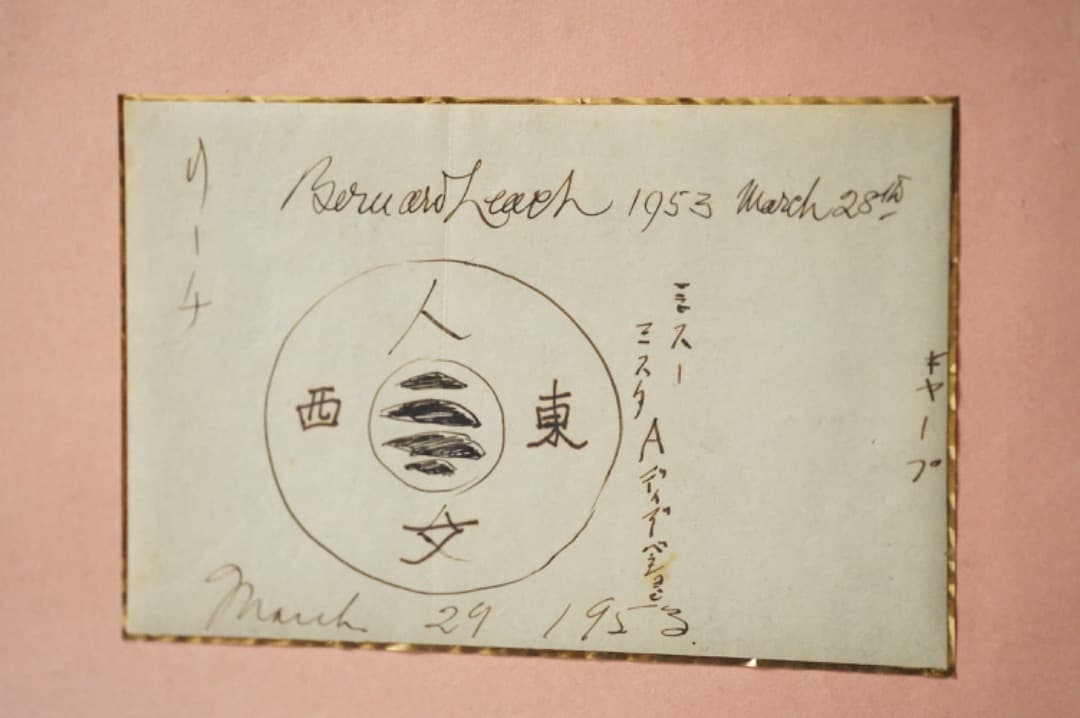 リーチ
Bernard Leach 1953 March 28th
人
西
東
女
ミスー
ミスタ A
キャープ
March 29 1953.